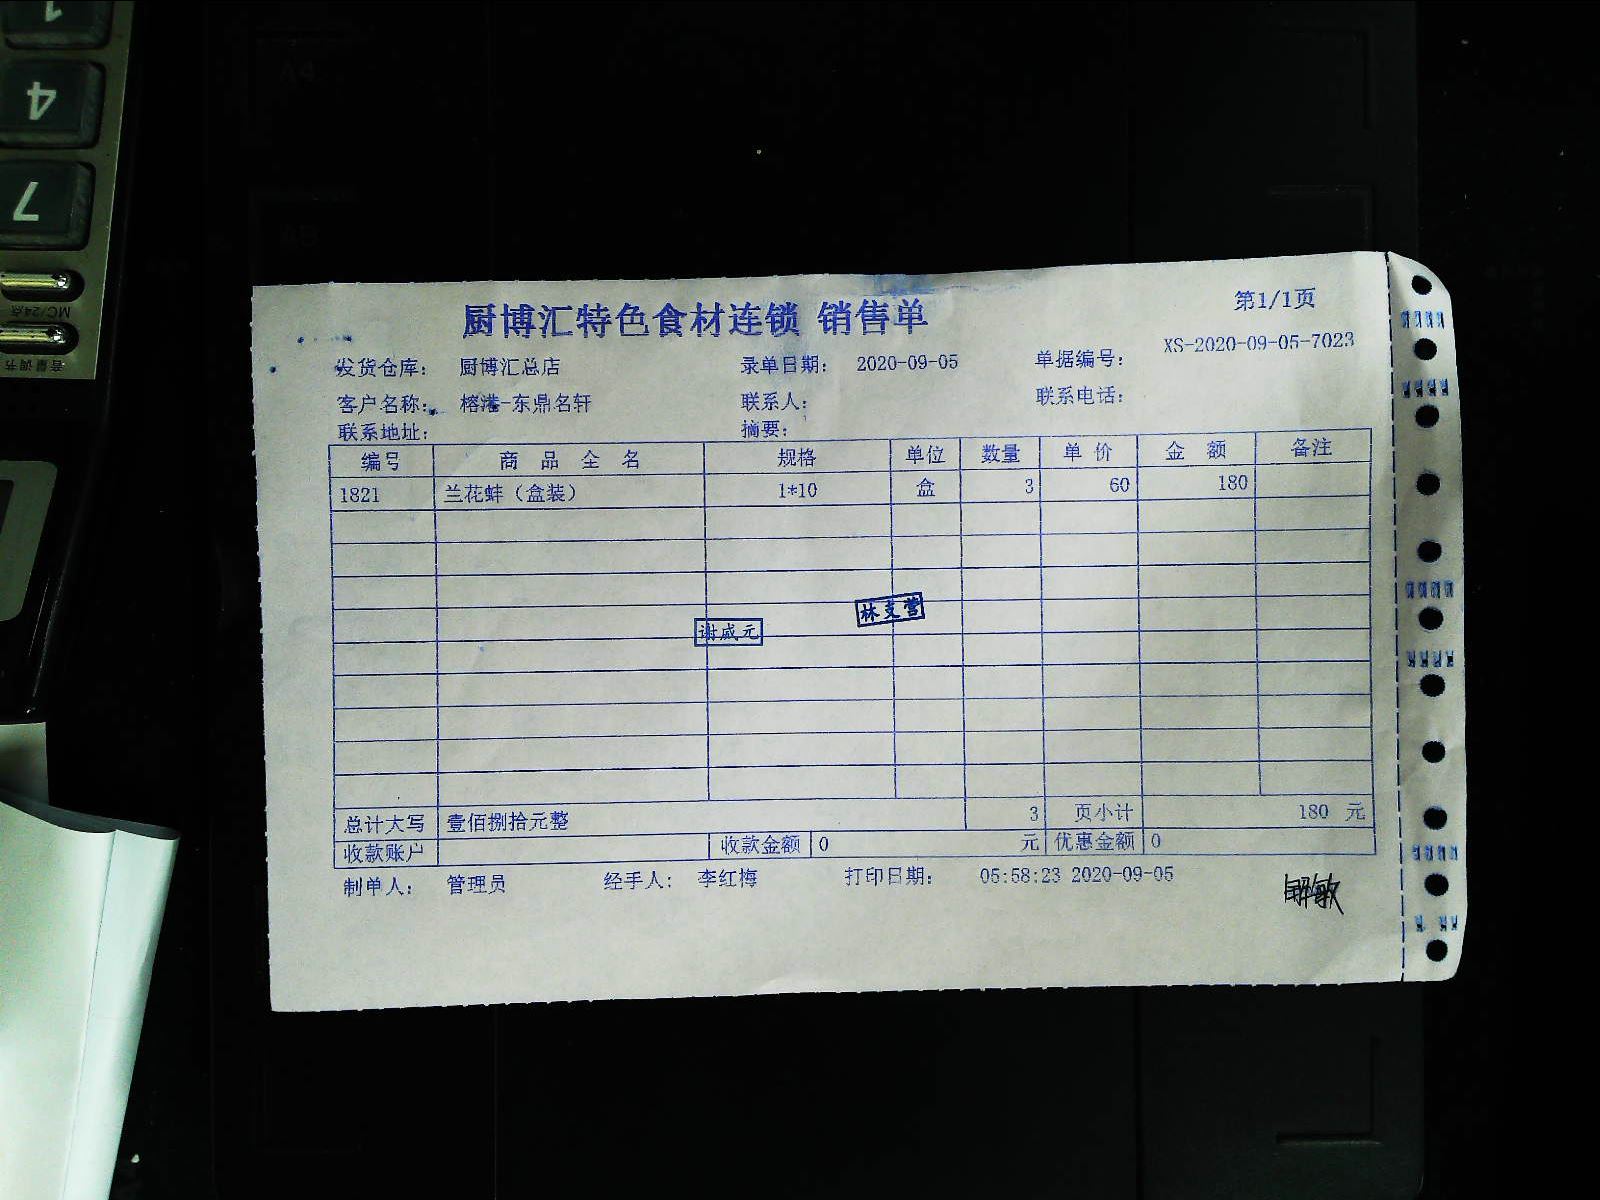 厨博汇特色食材连锁 销售单
第1/1页
发货仓库： 厨博汇总店 录单日期： 2020-09-05 单据编号： XS-2020-09-05-7023
客户名称： 榕港-东鼎名轩 联系人： 联系电话：
联系地址： 摘要：
编号 商品全名 规格 单位 数量 单价 金额 备注
1821 兰花蚌（盒装） 1*10 盒 3 60 180
林支营
谢成元
总计大写 壹佰捌拾元整 3 页小计 180 元
收款账户 收款金额 0 元 优惠金额 0
制单人： 管理员 经手人： 李红梅 打印日期： 05:58:23 2020-09-05
1
4
7
MC/24点
音量调节
A4